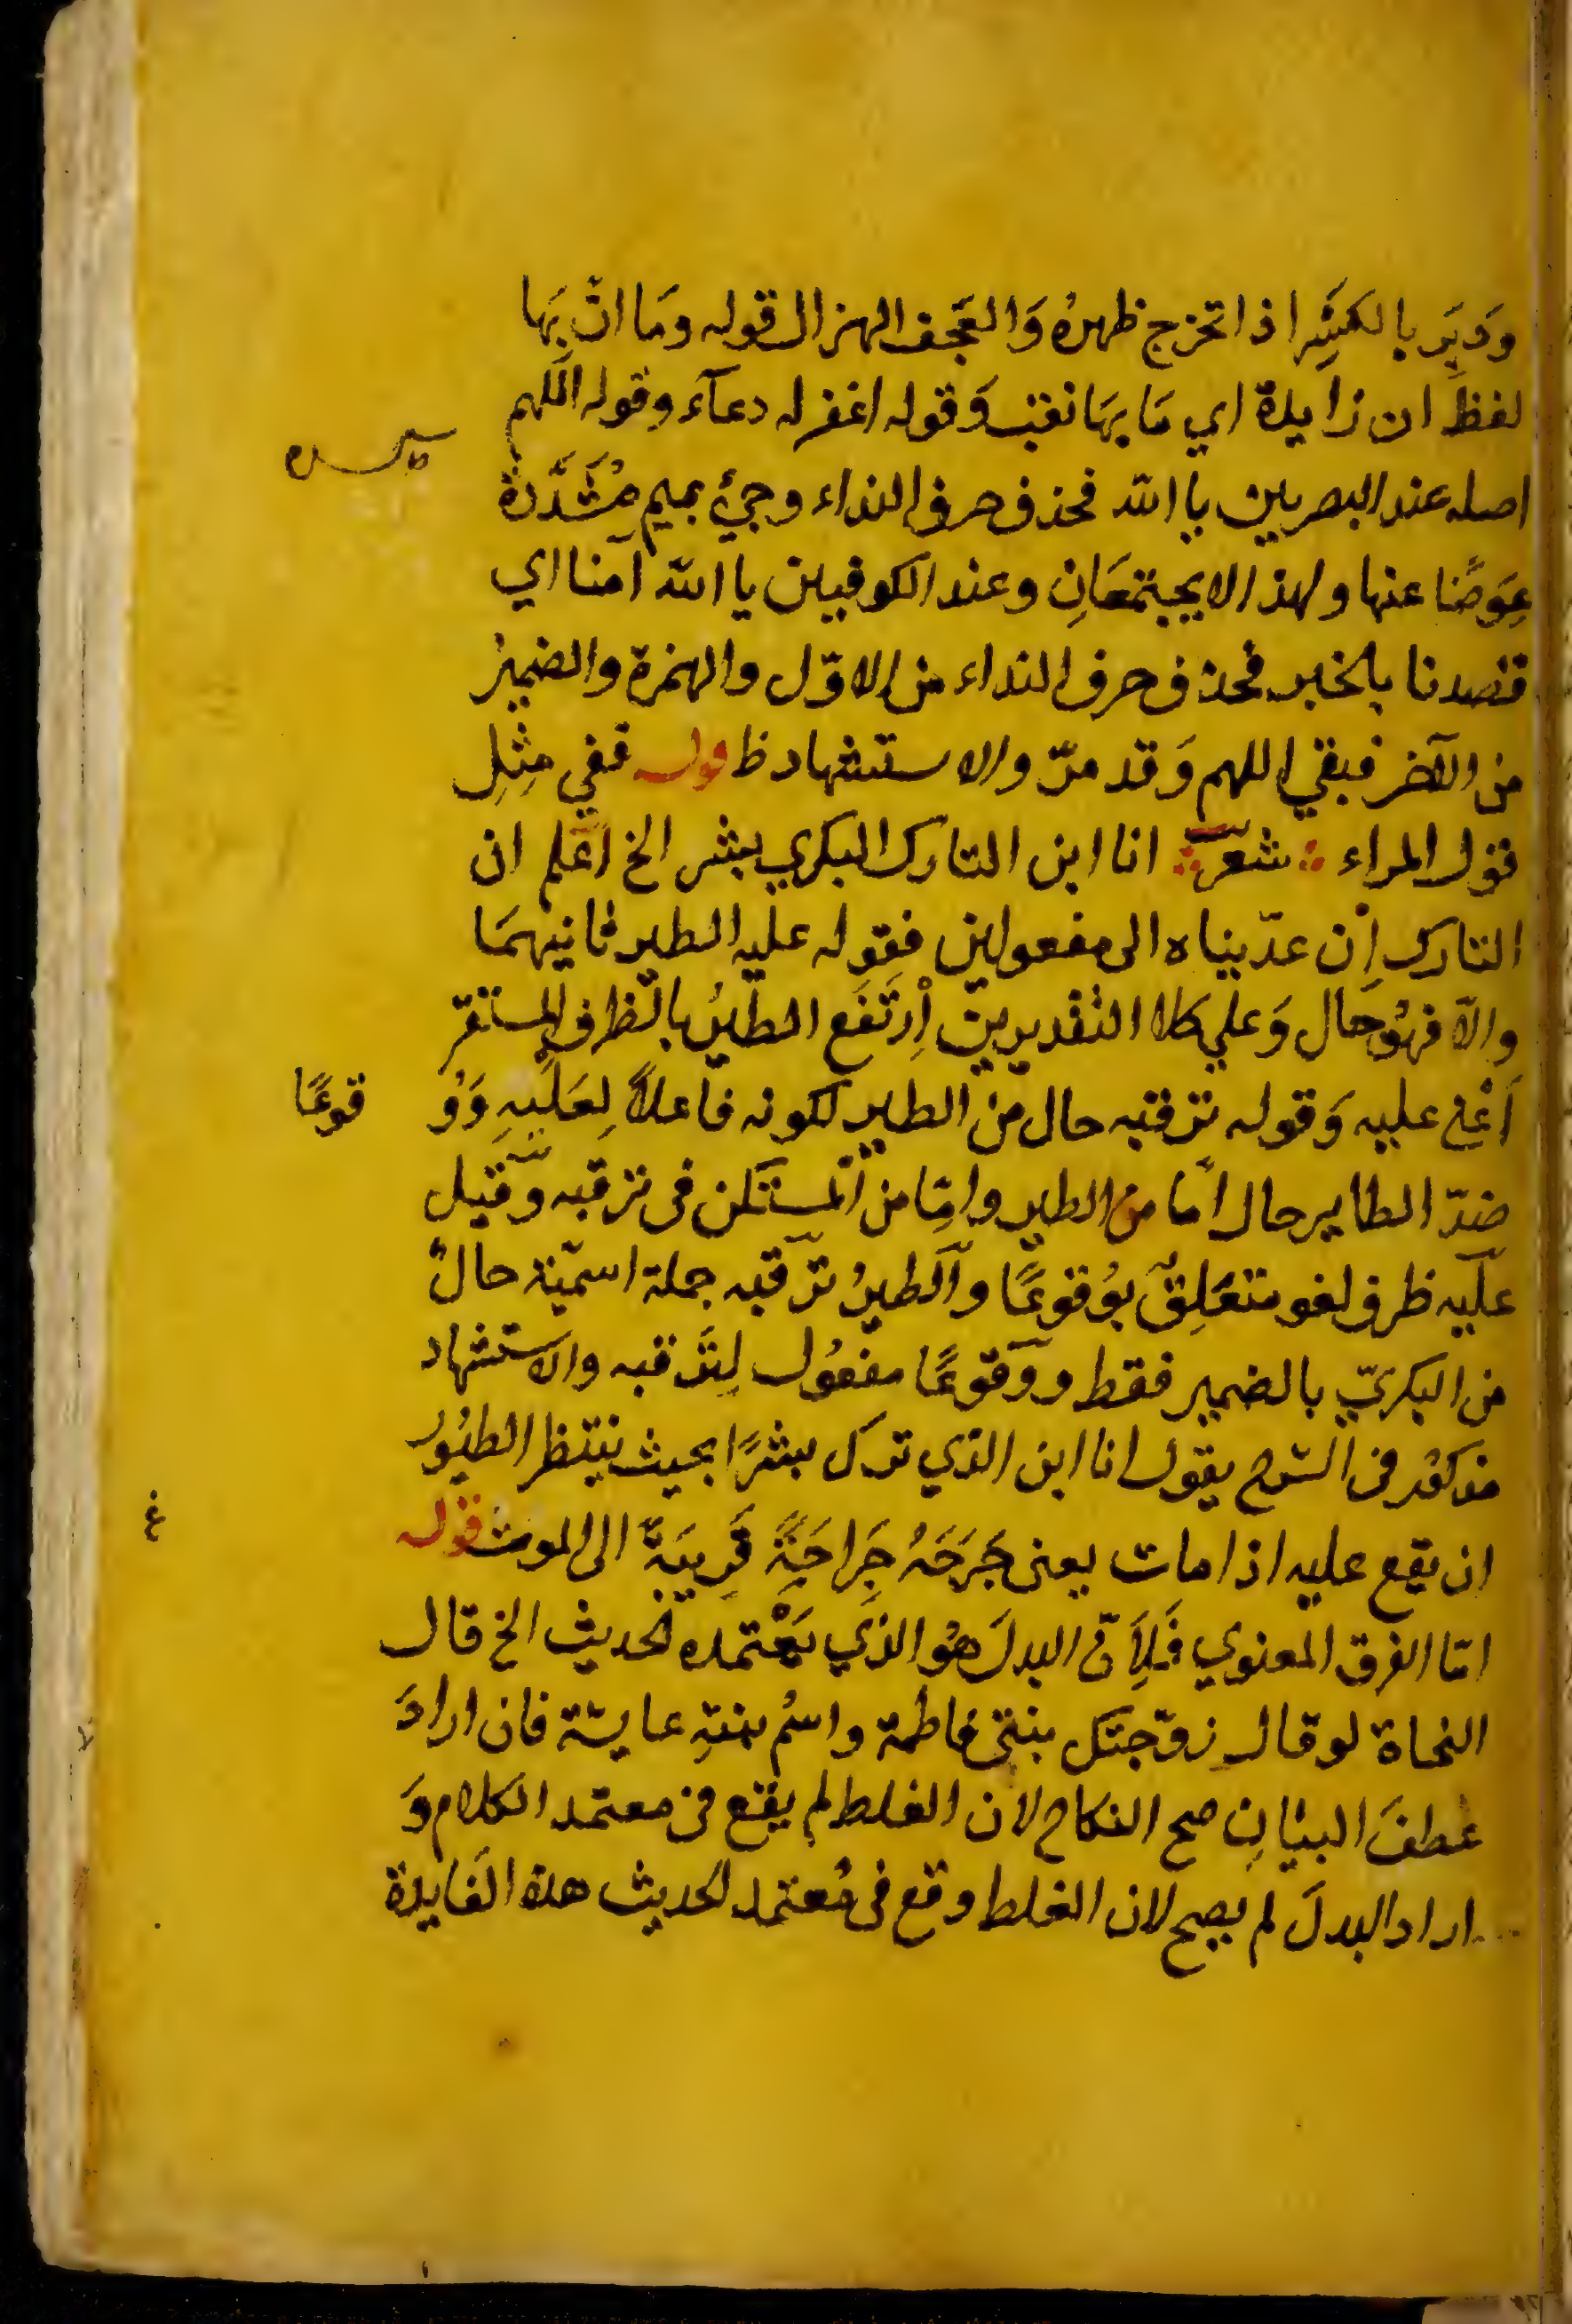 وَدَبِرَ بالكَسْرِ اذا تخرج ظهرهُ وَالعَجف الهزال قوله ومَا ان بِهَا
لفظ ان زايدة اي مَا بهَا نقب وَقوله اغفر له دعآء وقوله اللهم
اصله عند البصريين يا الله فحذف حرف النداء وجيء بميم مُشَدَّدة
عِوَضًا عنها ولهذا لا يجتمعَانِ وعند الكوفيين يا الله امنا اي
قصدنا بالخير فحذف حرف النداء من الاوّل والهمزة والضميرُ
من الآخر فبقي اللهم وَقد مرّ والاستشهاد ظ قوله ففي مِثلِ
قول المراء شعر انا ابن التارك البكري بشر الخ اعلم ان
التارك اِن عدّيناه الى مفعولين فقوله عليه الطير ثانيهمَا
والّا فهُو حَال وَعلي كلا التقديرين اِرتَفَع الطيرُ بالظرف المستقر
أعني عليه وَقوله ترقبه حال من الطير لكونه فاعلاً لِعَلَيهِ وَوُ قوعًا
ضدّ الطاير حال امّا من الطير وامّا من المستكن فى ترقبه وَقيل
عليه ظرف لغو متعَلِقٌ بوُقوعًا والطيرُ ترقبه جملة اسميّة حالٌ
من البكريّ بالضمير فقط ووقوعًا مفعُول لِترقبه والاستشهاد
مذكوُر فى الشرح يقول انا ابن الذي ترك بشرًا بحيث ينتظر الطيُور
ان يقع عليه اذا مات يعنى جَرَحَهُ جِرَاحَةً قَرِيبَةً الى الموت قوله
امّا الفرق المعنوي فَلِأَنّ البدلَ هُو الذي يَعْتمده الحديث الخ قال
النحاة لو قال زوّجتك بنتى فاطمة واسمُ بنتهِ عايشة فان ارادَ
عطفَ البيَانِ صح النكاح لان الغلط لم يقع فى معتمد الكلام وَ
اراد البدلَ لم يصح لان الغلط وقع فى مُعتمد الحديث هذه الفايدة